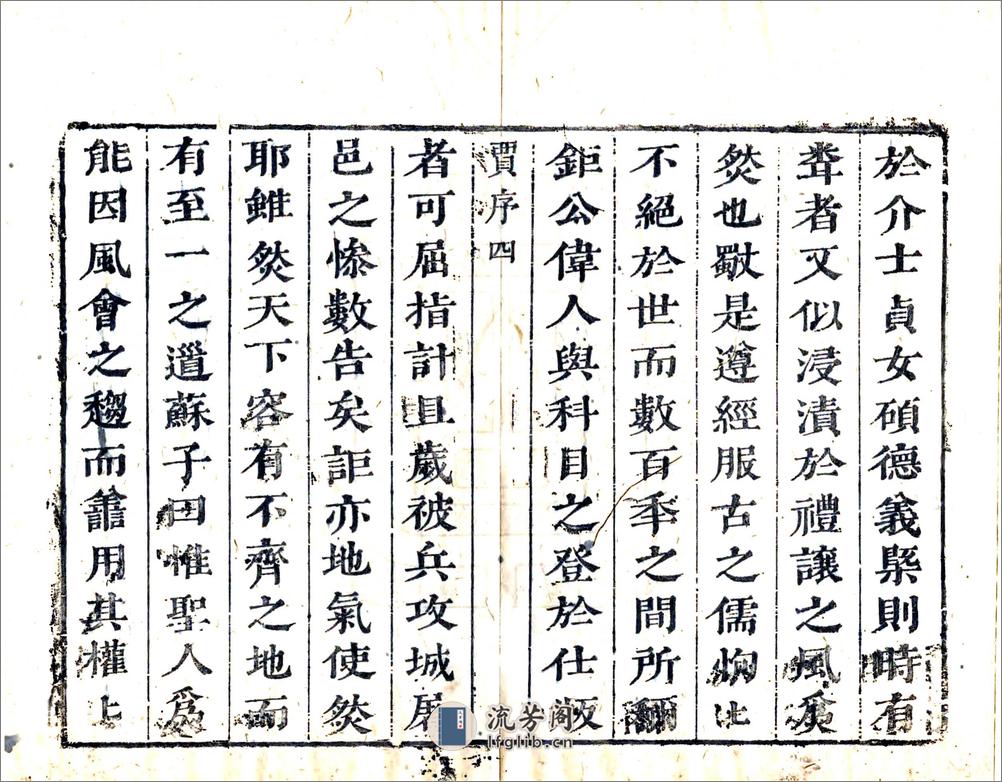 於介士貞女碩德義槩則時有
聋者又似浸漬於禮讓之風矣
焂也歇是遵經服古之儒炯比
不絕於世而數百秊之間所稱
鉅公偉人與科目之登於仕版
賈序四
者可屈指計且歲被兵攻城屠
邑之慘數告矣詎亦地氣使焂
耶雖焂天下容有不齊之地而
有至一之道蘇子曰惟聖人爲
能因風會之趨而譱用其權上
流芳阁
lfglib.cn